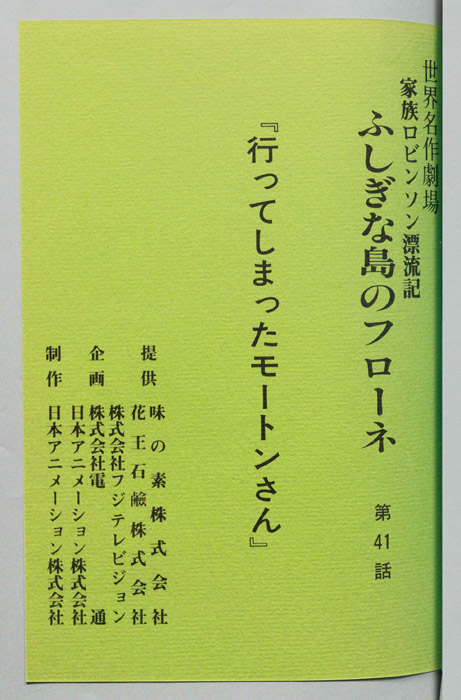 世界名作劇場
家族ロビンソン漂流記
ふしぎな島のフローネ
第41話
『行ってしまったモートンさん』
提供 味の素株式会社
花王石鹸株式会社
企画 株式会社フジテレビジョン
株式会社電通
日本アニメーション株式会社
制作 日本アニメーション株式会社